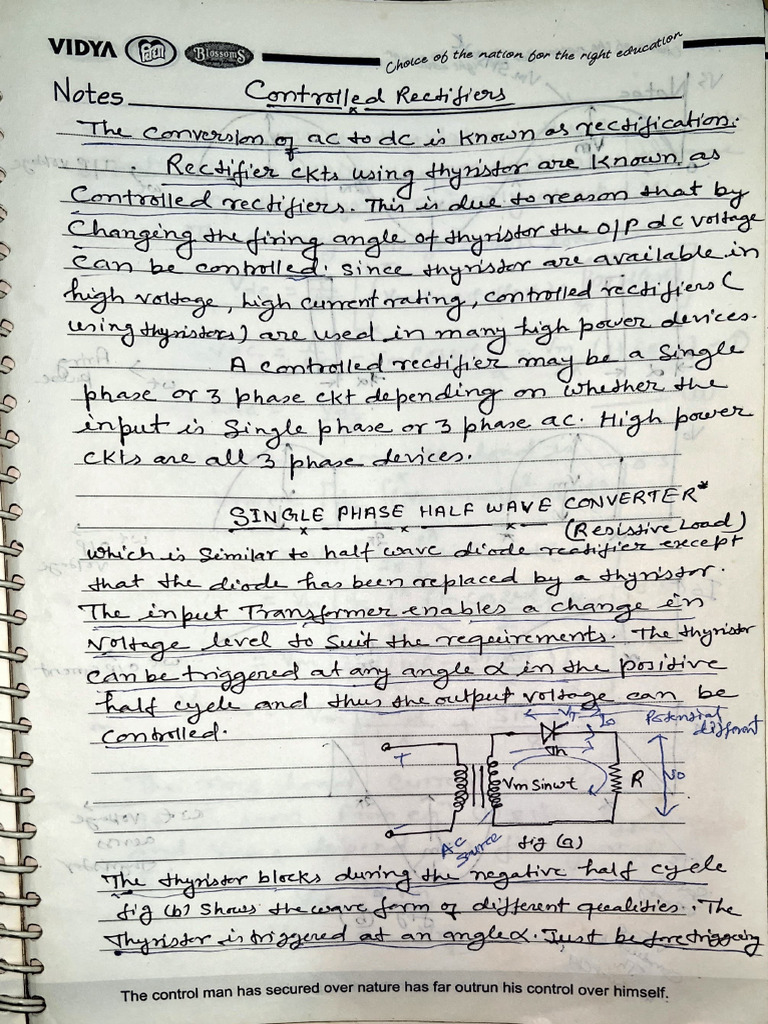 VIDYA BLOSSOMS
Choice of the nation for the right education
Notes Controlled Rectifiers
The conversion of ac to dc is known as rectification.
Rectifier ckts using thyristor are known as
Controlled rectifiers. This is due to reason that by
Changing the firing angle of thyristor the O/P dc voltage
can be controlled. Since thyristor are available in
high voltage, high current rating, controlled rectifiers (
using thyristors) are used in many high power devices.
A controlled rectifier may be a single
phase or 3 phase ckt depending on whether the
input is single phase or 3 phase ac. High power
ckts are all 3 phase devices.
SINGLE PHASE HALF WAVE CONVERTER*
(Resistive Load)
which is similar to half wave diode rectifier except
that the diode has been replaced by a thyristor.
The input Transformer enables a change in
Voltage level to suit the requirements. The thyristor
can be triggered at any angle α in the positive
half cycle and thus the output voltage can be
controlled.
VT Io Potential different
Th
+
Vm Sinωt R Vo
AC Source fig (a)
The thyristor blocks during the negative half cycle
fig (b) shows the wave form of different qualities. The
Thyristor is triggered at an angle α. Just before triggering
The control man has secured over nature has far outrun his control over himself.